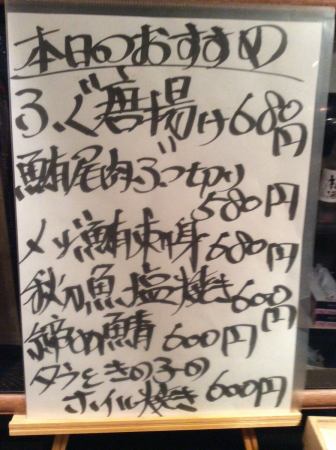 本日のおすすめ
ふぐ唐揚げ680円
鮪尾肉ぶつ切り
580円
メジ鮪刺身680円
秋刀魚塩焼き600円
締め鯖600円
タラときの子の
ホイル焼き600円